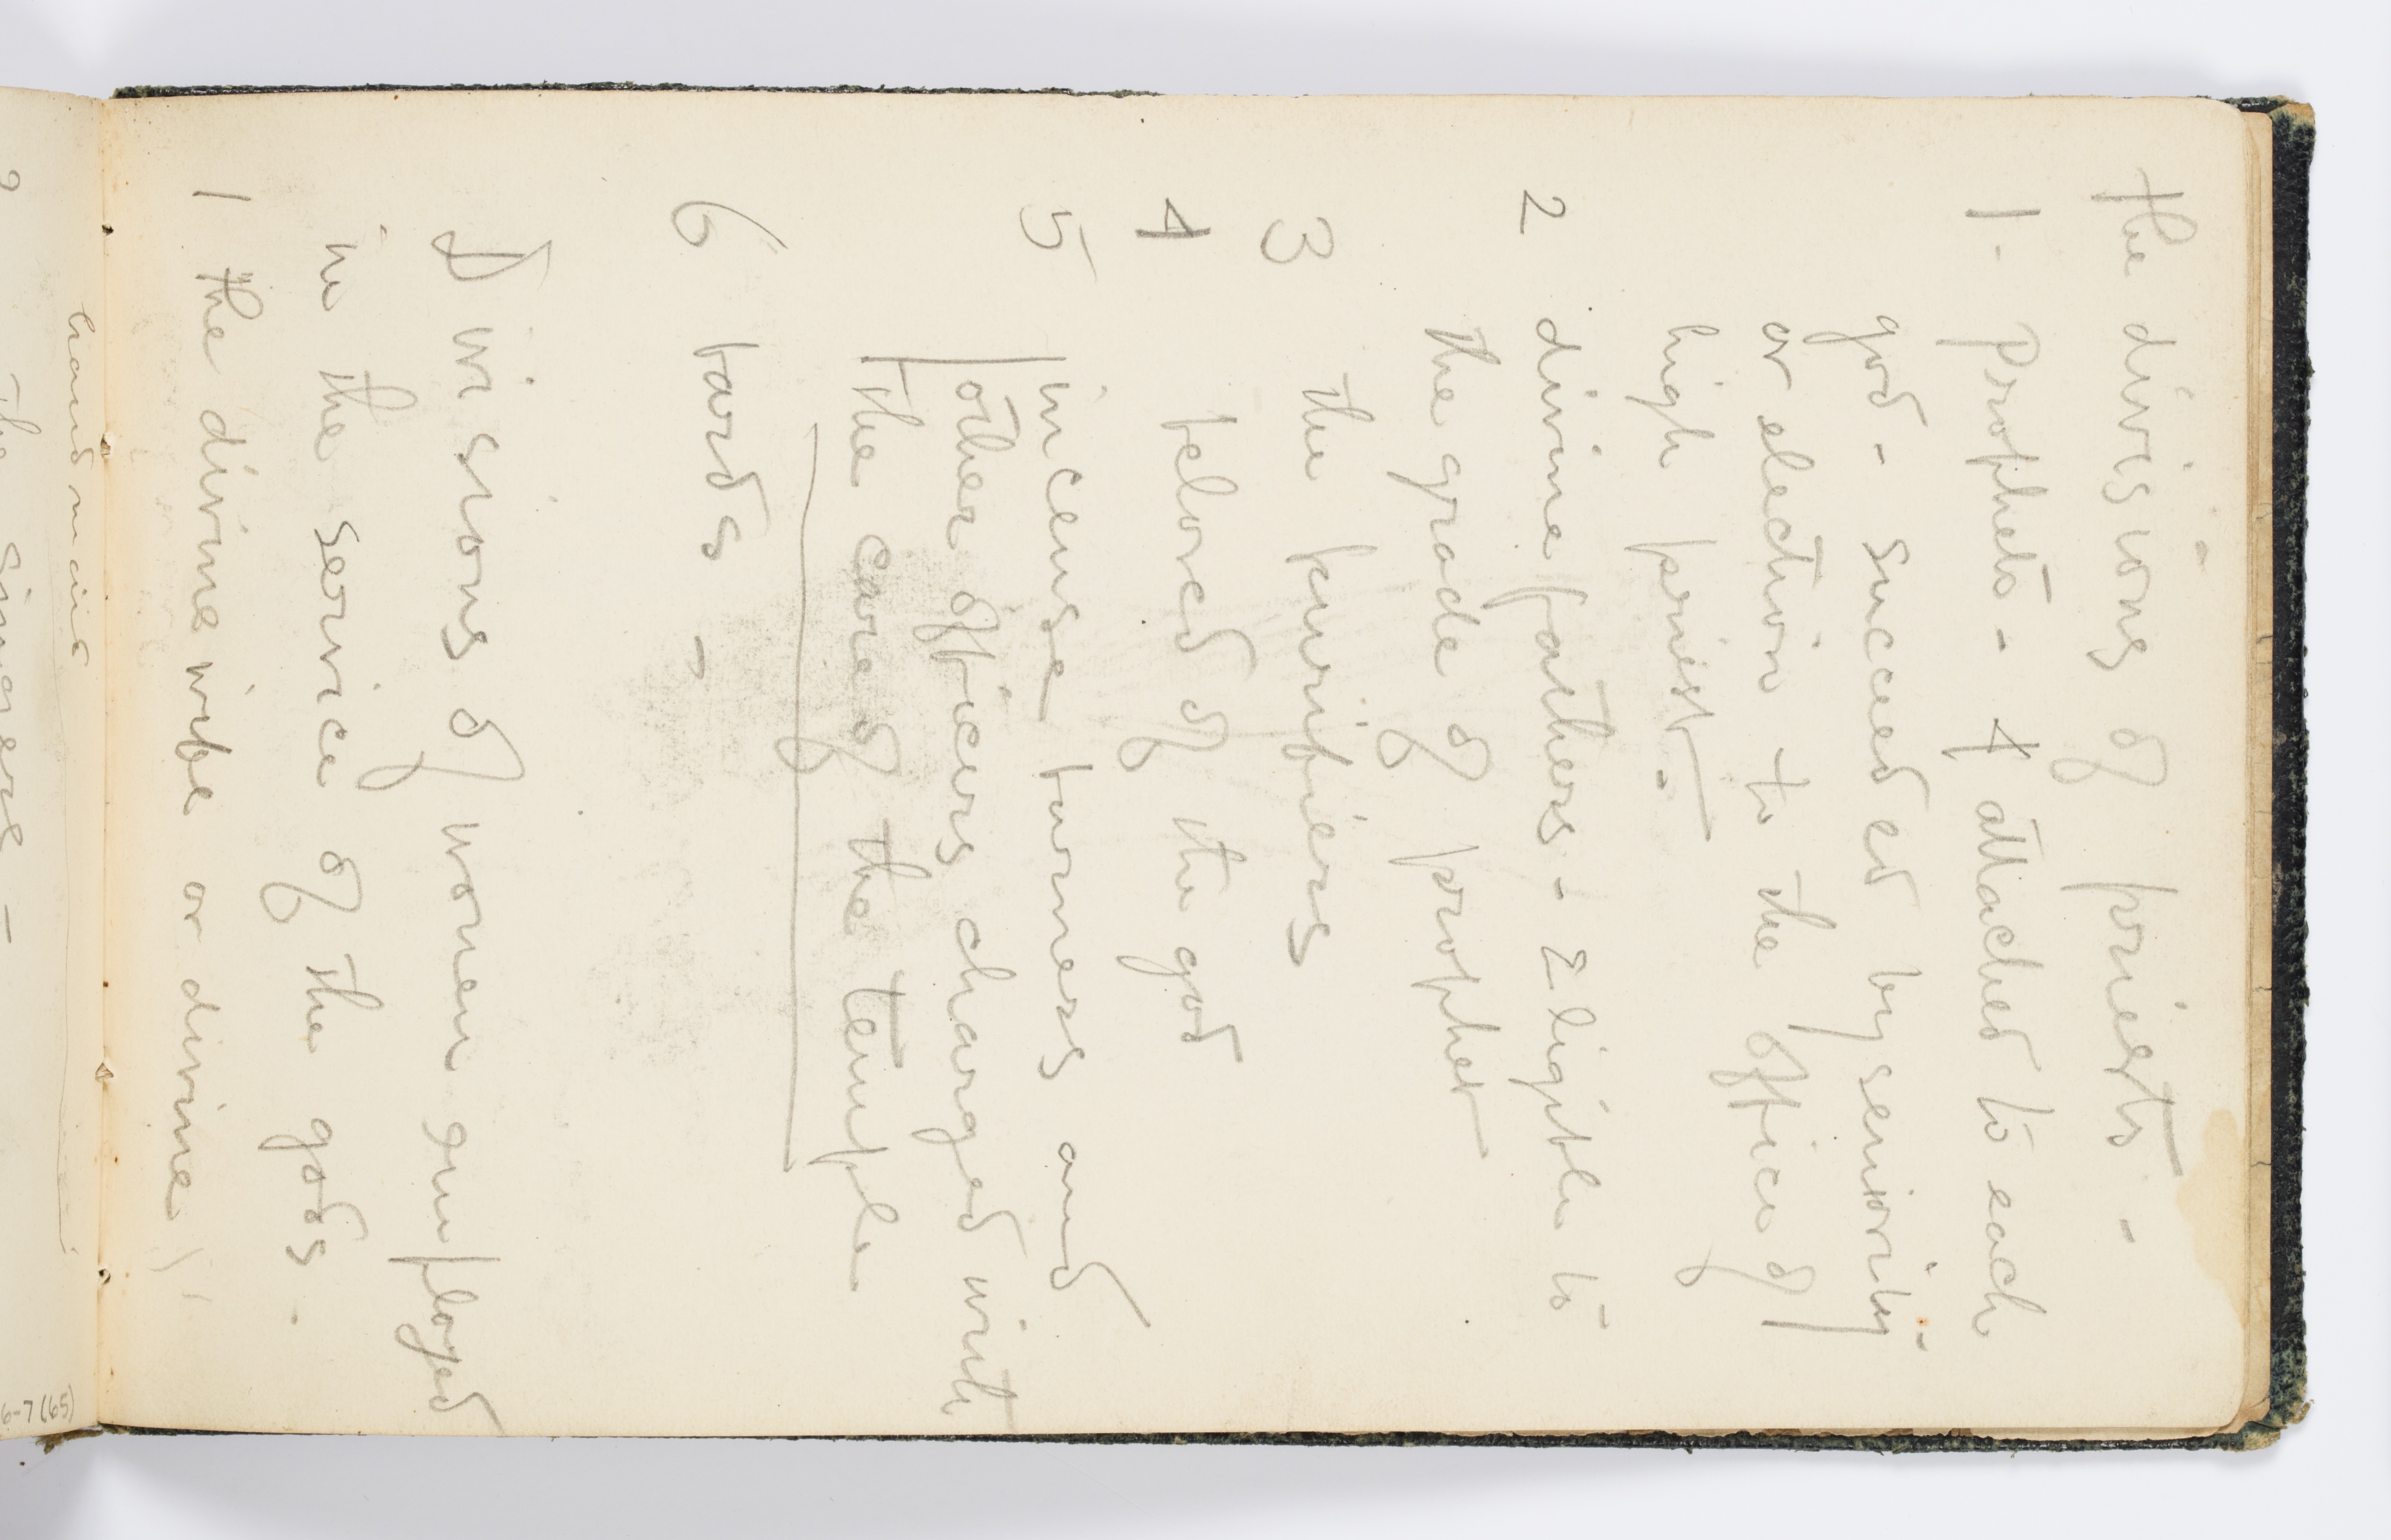 The divisions of priests -
1 - Prophets - 4 attached to each
god - succeeded by seniority -
or election to the office of
high priest -
2 divine fathers - Eligible to
the grade of prophet
3 the purifiers
4 beloved of the god
5 incense burners and
other officers charged with
the care of the temple
6 bards -
Divisions of women employed
in the service of the gods.
1 the divine wife or divine
handmaid
2 The singers -
6-7 (65)